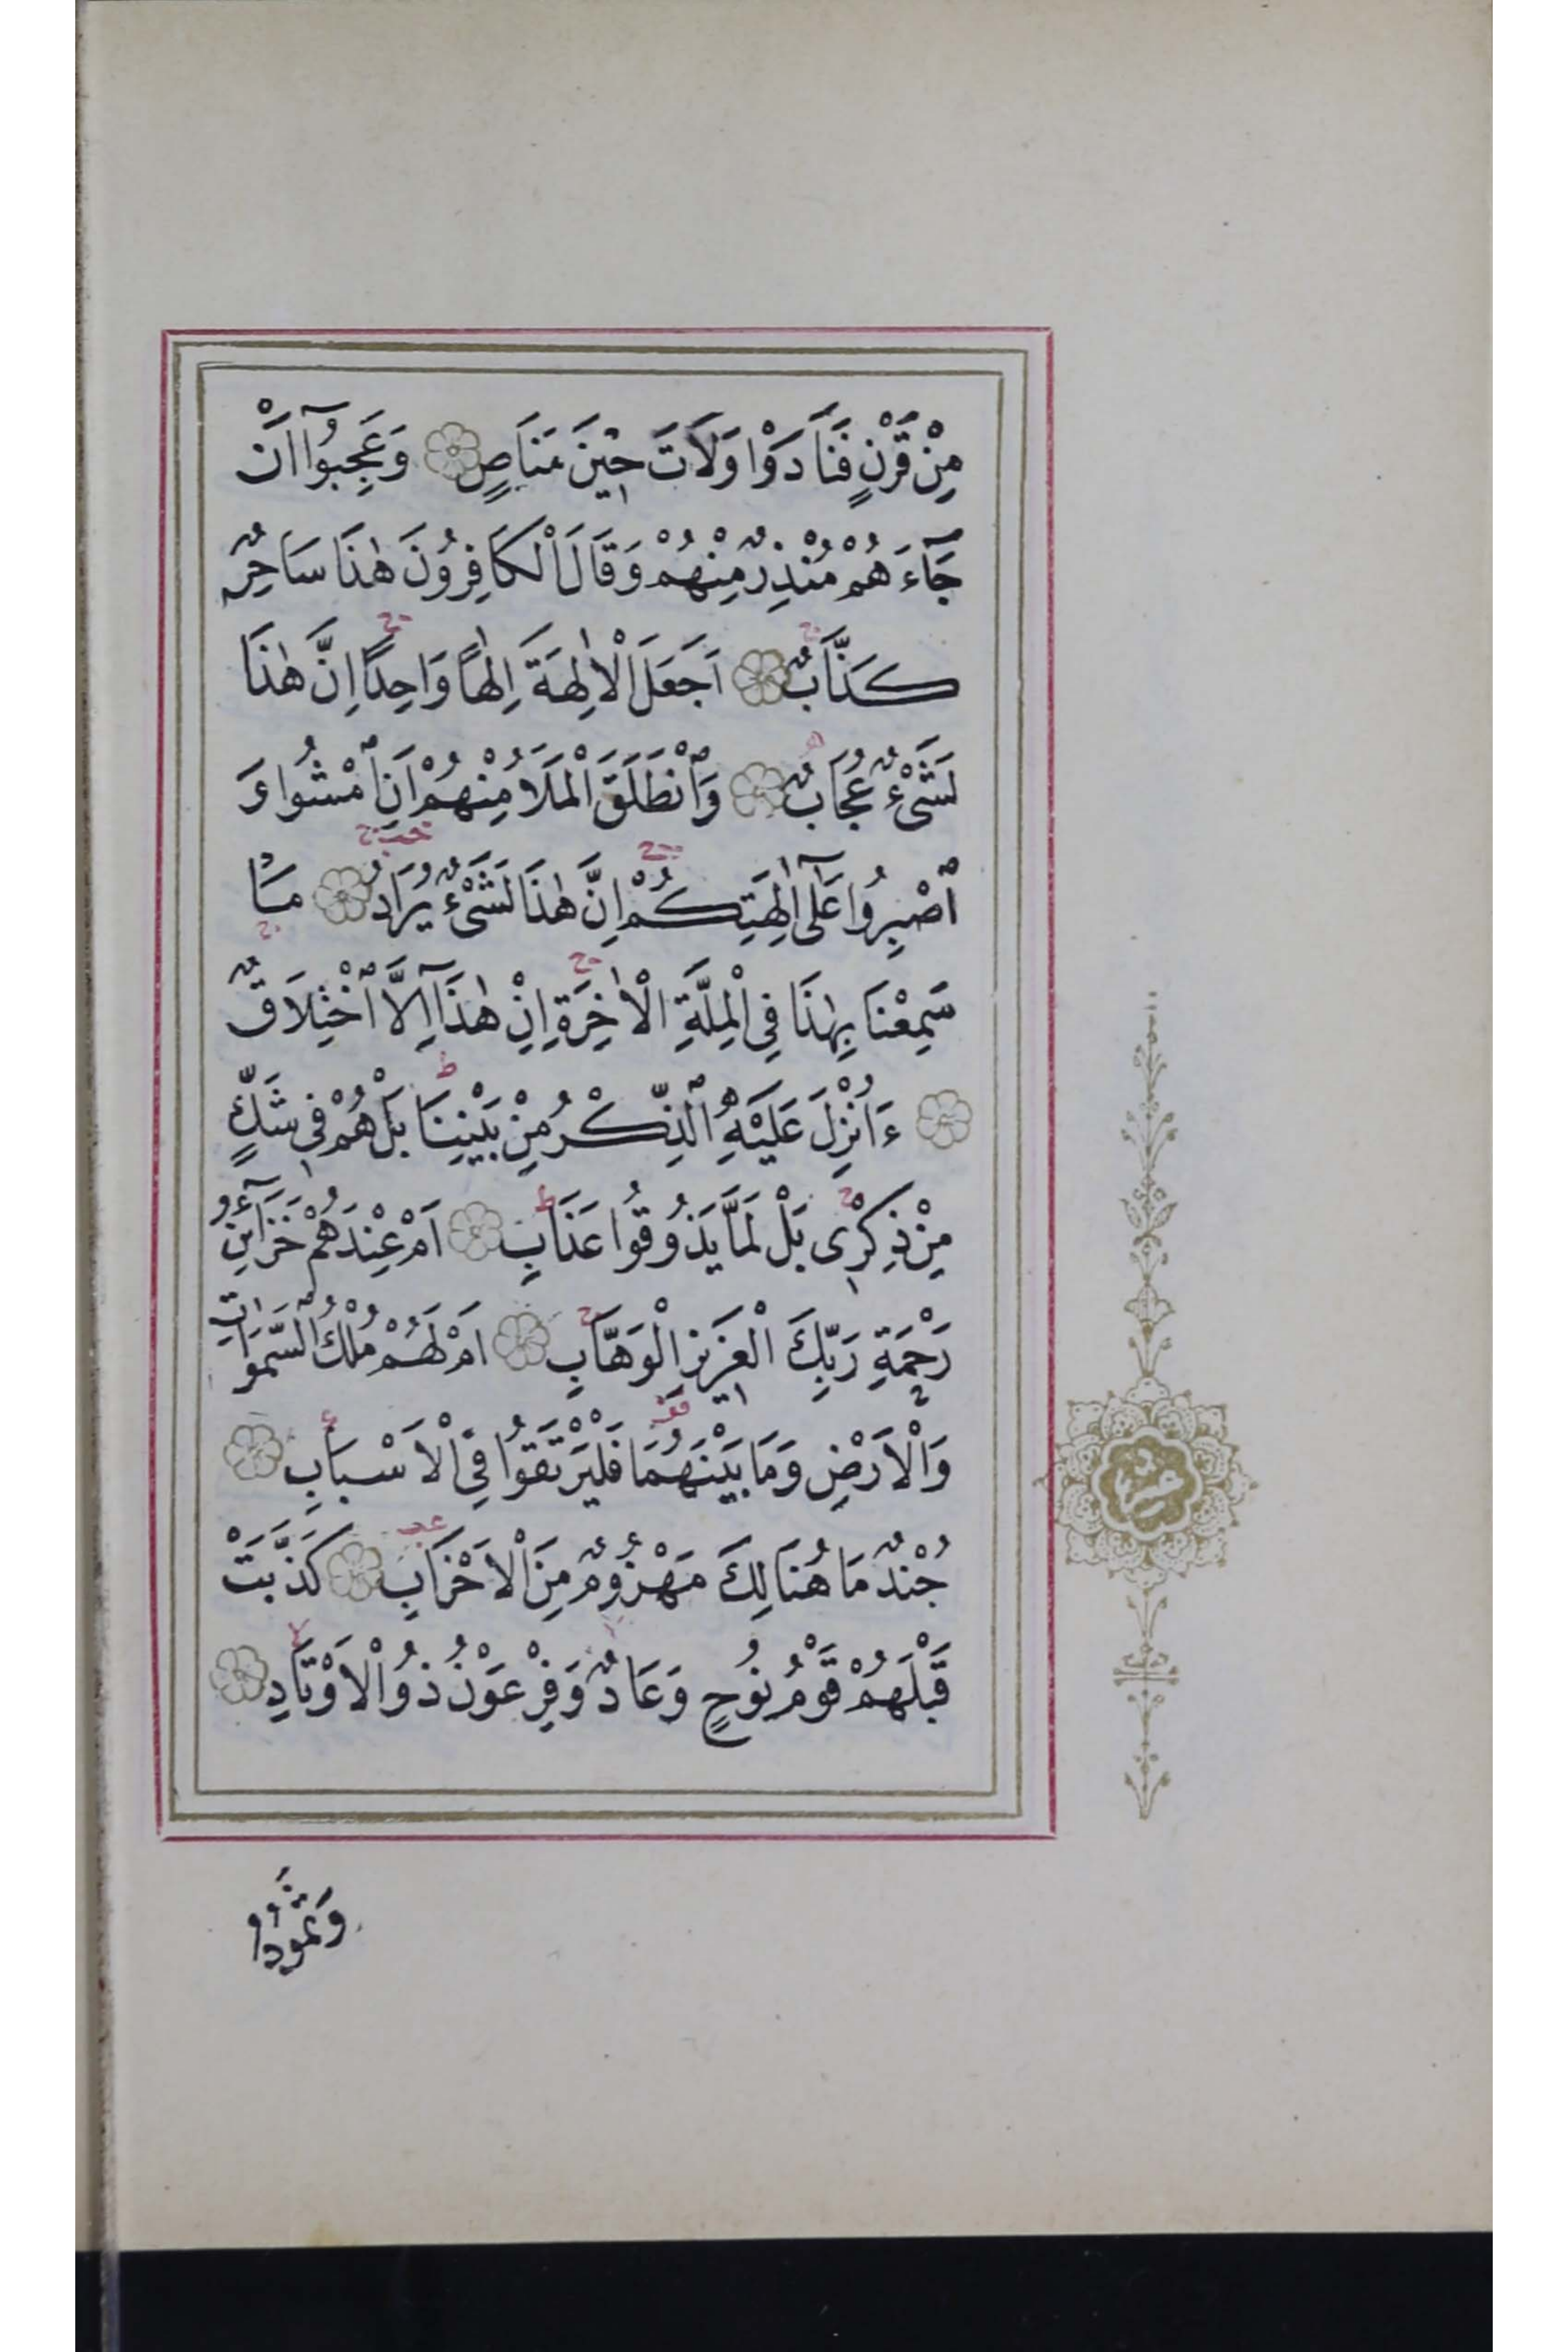 مِنْ قَرْنٍ فَنَادَوْا وَلَاتَ حِينَ مَنَاصٍ وَعَجِبُوٓا اَنْ
جَٓاءَهُمْ مُنْذِرٌ مِنْهُمْ وَقَالَ الْكَافِرُونَ هٰذَا سَاحِرٌ
كَذَّابٌ اَجَعَلَ الْاٰلِهَةَ اِلٰهًا وَاحِدًا اِنَّ هٰذَا
لَشَىْءٌ عُجَابٌ وَانْطَلَقَ الْمَلَاُ مِنْهُمْ اَنِ امْشُوا وَ
اصْبِرُوا عَلٰٓى اٰلِهَتِكُمْ اِنَّ هٰذَا لَشَىْءٌ يُرَادُ مَا
سَمِعْنَا بِهٰذَا فِى الْمِلَّةِ الْاٰخِرَةِ اِنْ هٰذَٓا اِلَّا اخْتِلَاقٌ
ءَاُنْزِلَ عَلَيْهِ الذِّكْرُ مِنْ بَيْنِنَا بَلْ هُمْ فِى شَكٍّ
مِنْ ذِكْرِى بَلْ لَمَّا يَذُوقُوا عَذَابِ اَمْ عِنْدَهُمْ خَزَٓائِنُ
رَحْمَةِ رَبِّكَ الْعَزِيزِ الْوَهَّابِ اَمْ لَهُمْ مُلْكُ السَّمٰوَاتِ
وَالْاَرْضِ وَمَا بَيْنَهُمَا فَلْيَرْتَقُوا فِى الْاَسْبَابِ
جُنْدٌ مَا هُنَالِكَ مَهْزُومٌ مِنَ الْاَحْزَابِ كَذَّبَتْ
قَبْلَهُمْ قَوْمُ نُوحٍ وَعَادٌ وَفِرْعَوْنُ ذُو الْاَوْتَادِ
وَثَمُودُ